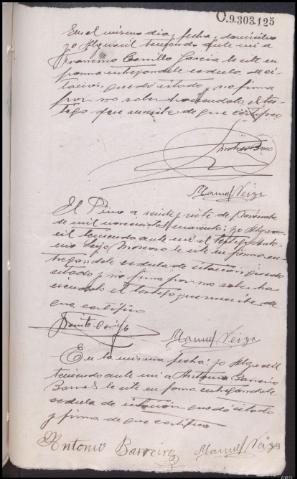 O.9.303.125
En el mismo dia, fecha y domicilio
yo Alguacil teniendo ante mi a
Francisco Carrillo Garcia le cite en
forma entregandole cedula de ci-
tacion, quedó citado, no firma
por no saber haciendolo el tes-
tigo que suscribe de que certifico
Manuel Veiga
El Pino a veinte y siete de Noviembre
de mil novecientos cuarenta; yo Algua-
cil teniendo ante mi el testigo Anto-
nio le cite en forma en-
tregandole cedula de citacion quedó
citado y no firma por no saber, ha-
ciendolo el testigo que suscribe de
que certifico
Manuel Veiga
En la misma fecha: yo Alguacil
teniendo ante mi a Antonio Barreiro
le cite en forma entregandole
cedula de citacion quedó citado
y firma de que certifico
Antonio Barreiro Manuel Veiga